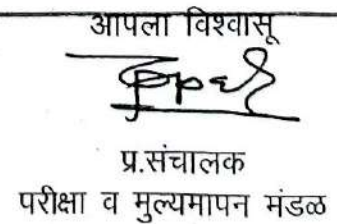 आपला विश्वासू
प्र.संचालक
परीक्षा व मुल्यमापन मंडळ